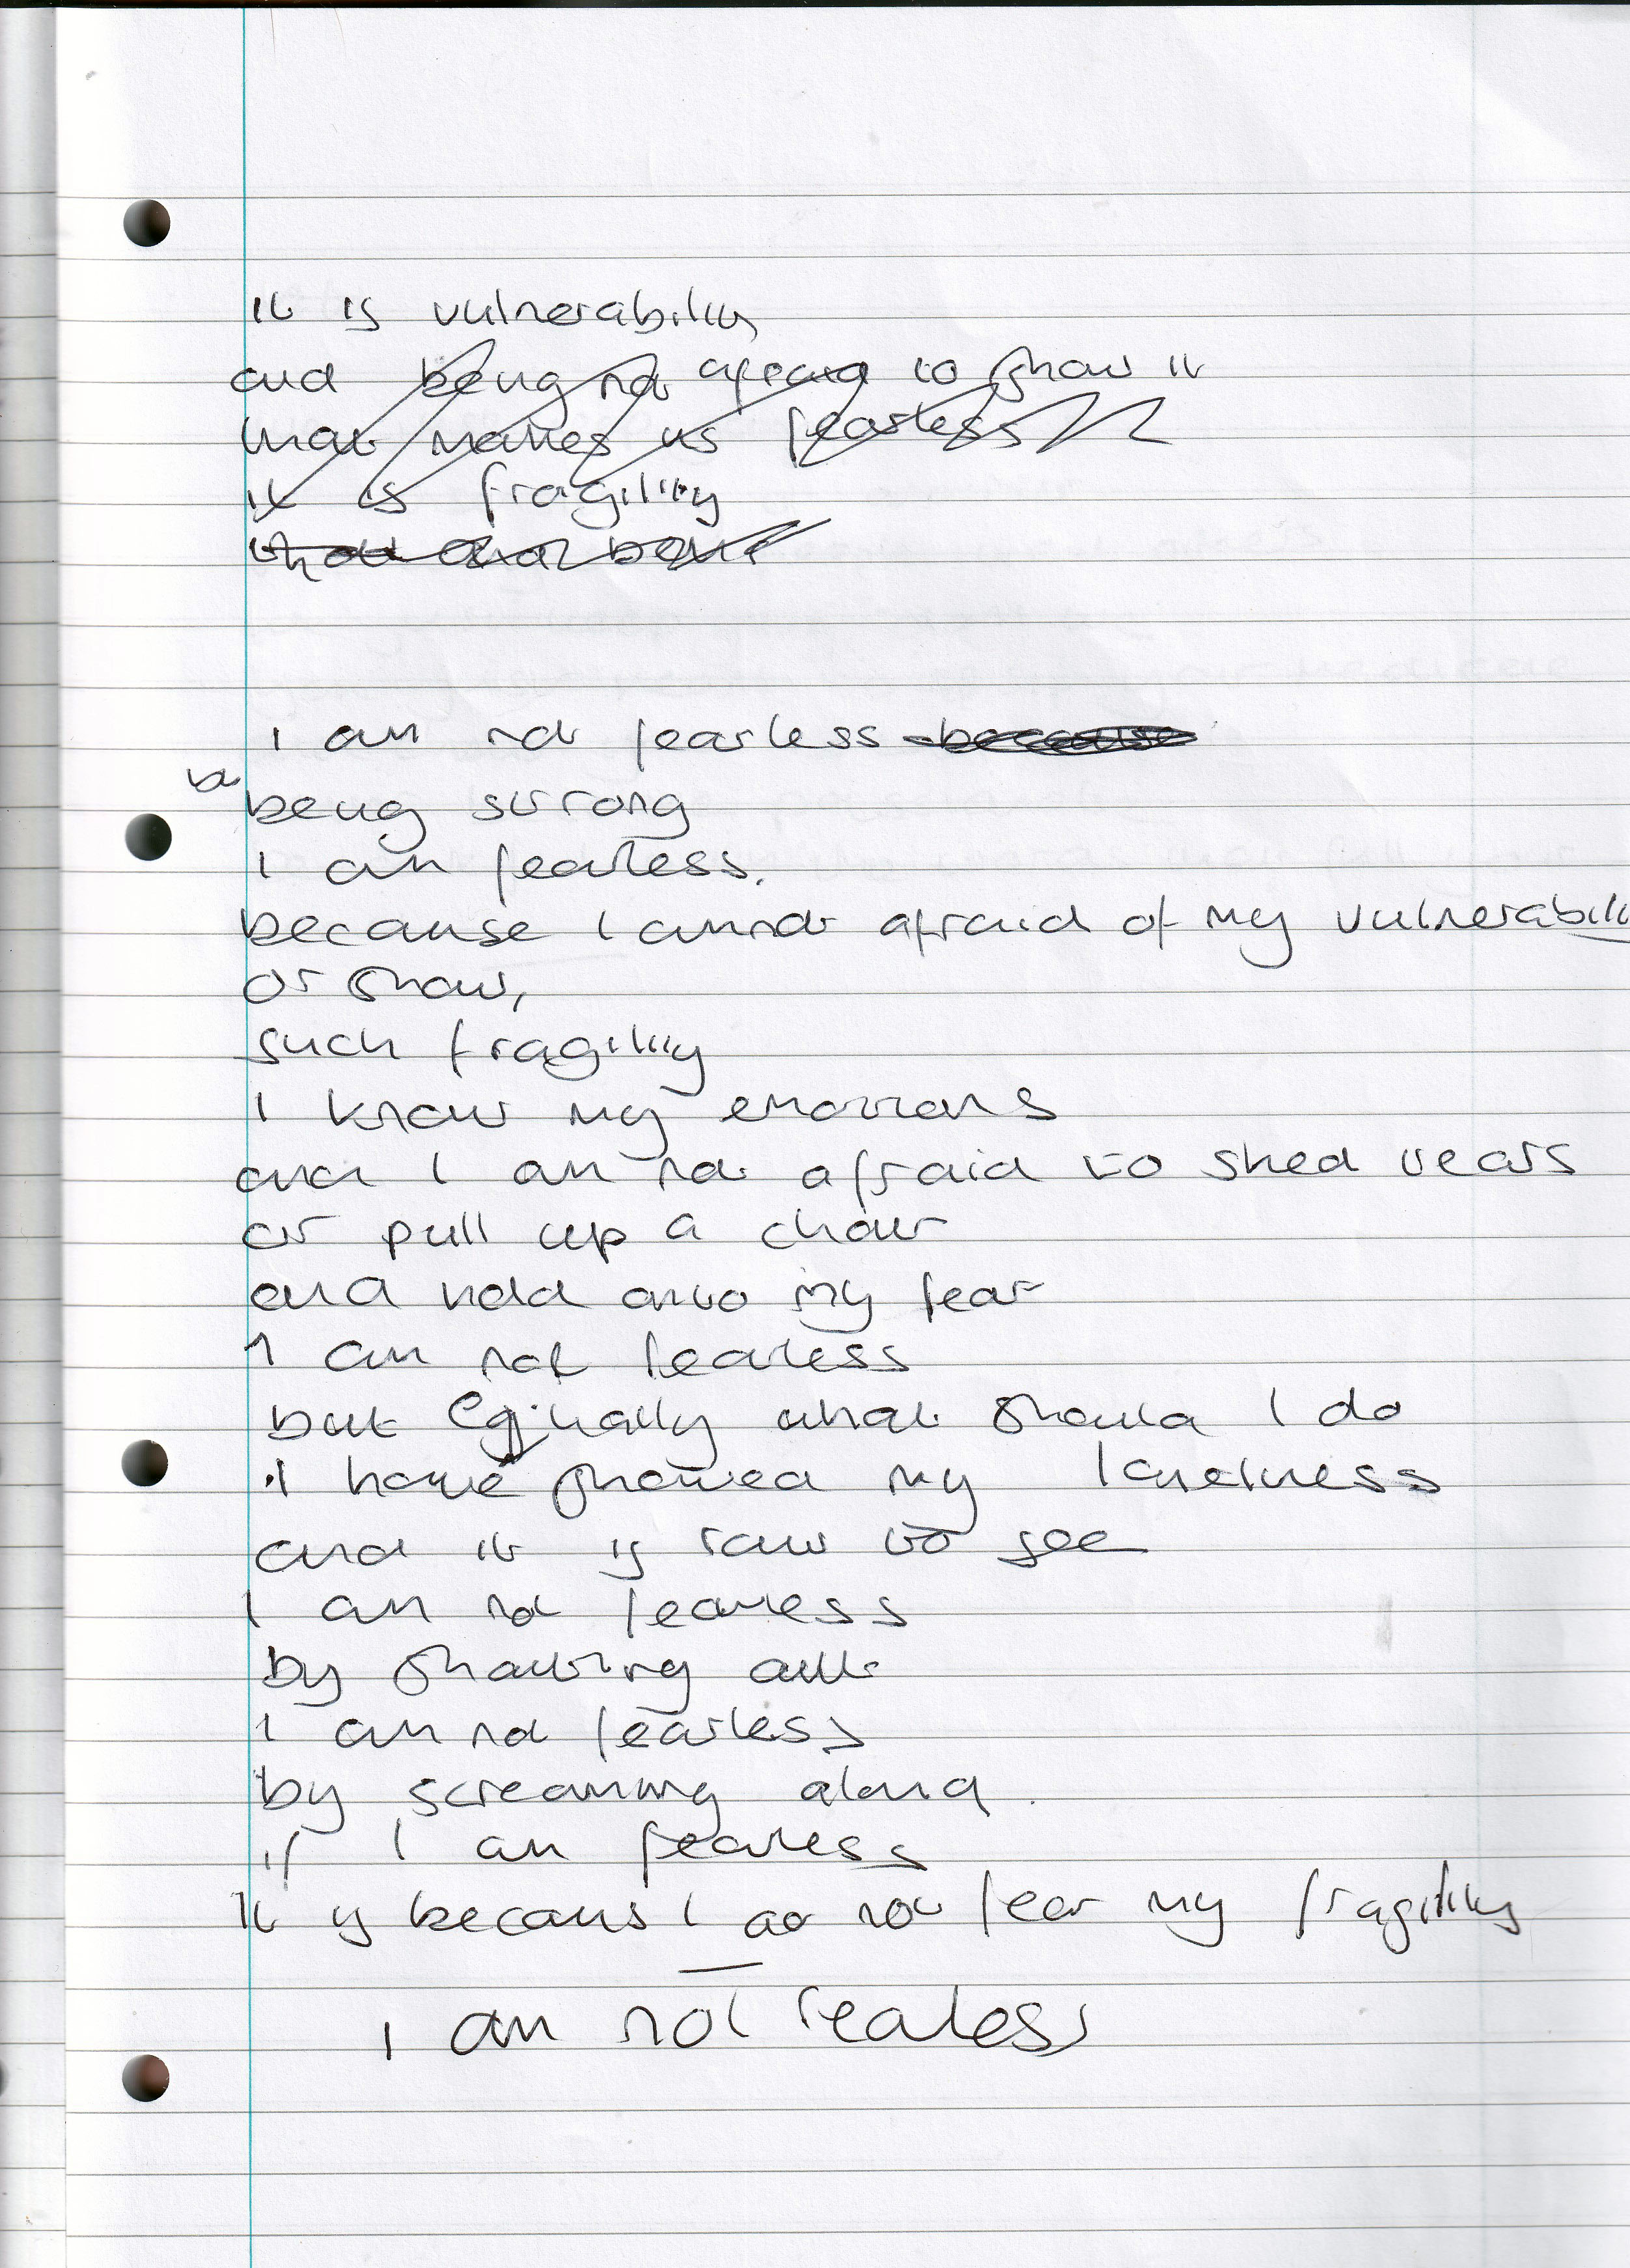 it is vulnerability
and being not afraid to show it
that makes us fearless
it is fragility
that
I am not fearless because
being strong
I am fearless.
because I am not afraid of my vulnerabili
or show,
such fragility
I know my emotions
and I am not afraid to shed tears
or pull up a chair
and hold onto my fear
I am not fearless
but what should I do
I have showed my loneliness
and it is raw to see
I am not fearless
by showing
I am not fearless
by screaming
if I am fearless
It is becaus I do not fear my fragility
I am not fealess